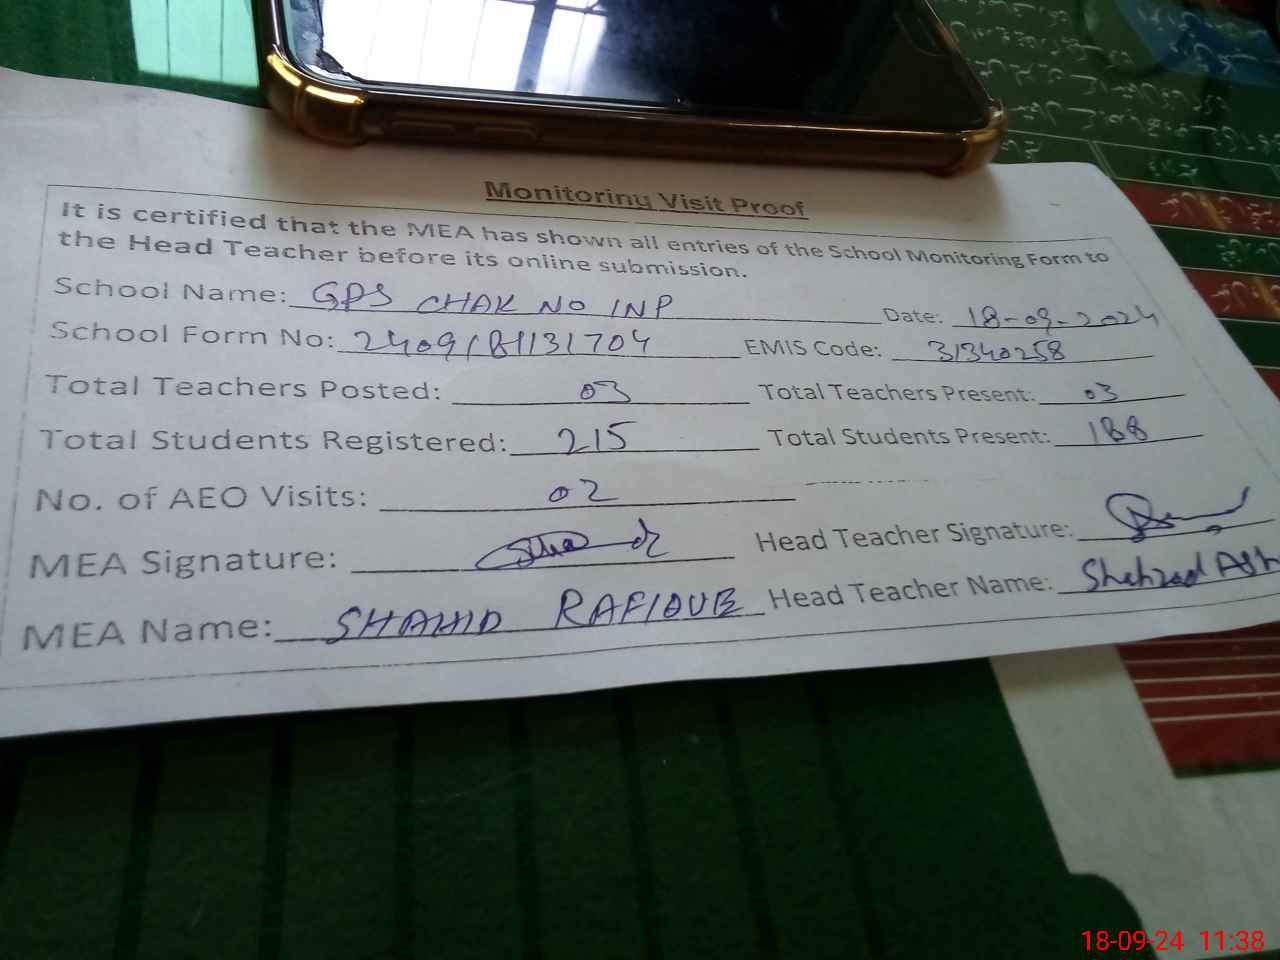 Monitoring Visit Proof
It is certified that the MEA has shown all entries of the School Monitoring Form to
the Head Teacher before its online submission.
School Name: GPS CHAK NO 1NP Date: 18-09-2024
School Form No: 2409181131704 EMIS Code: 31340258
Total Teachers Posted: 03 Total Teachers Present: 03
Total Students Registered: 215 Total Students Present: 188
No. of AEO Visits: 02
MEA Signature: Head Teacher Signature:
MEA Name: SHAHID RAFIQUE Head Teacher Name: Shehzad Ash
18-09-24 11:38